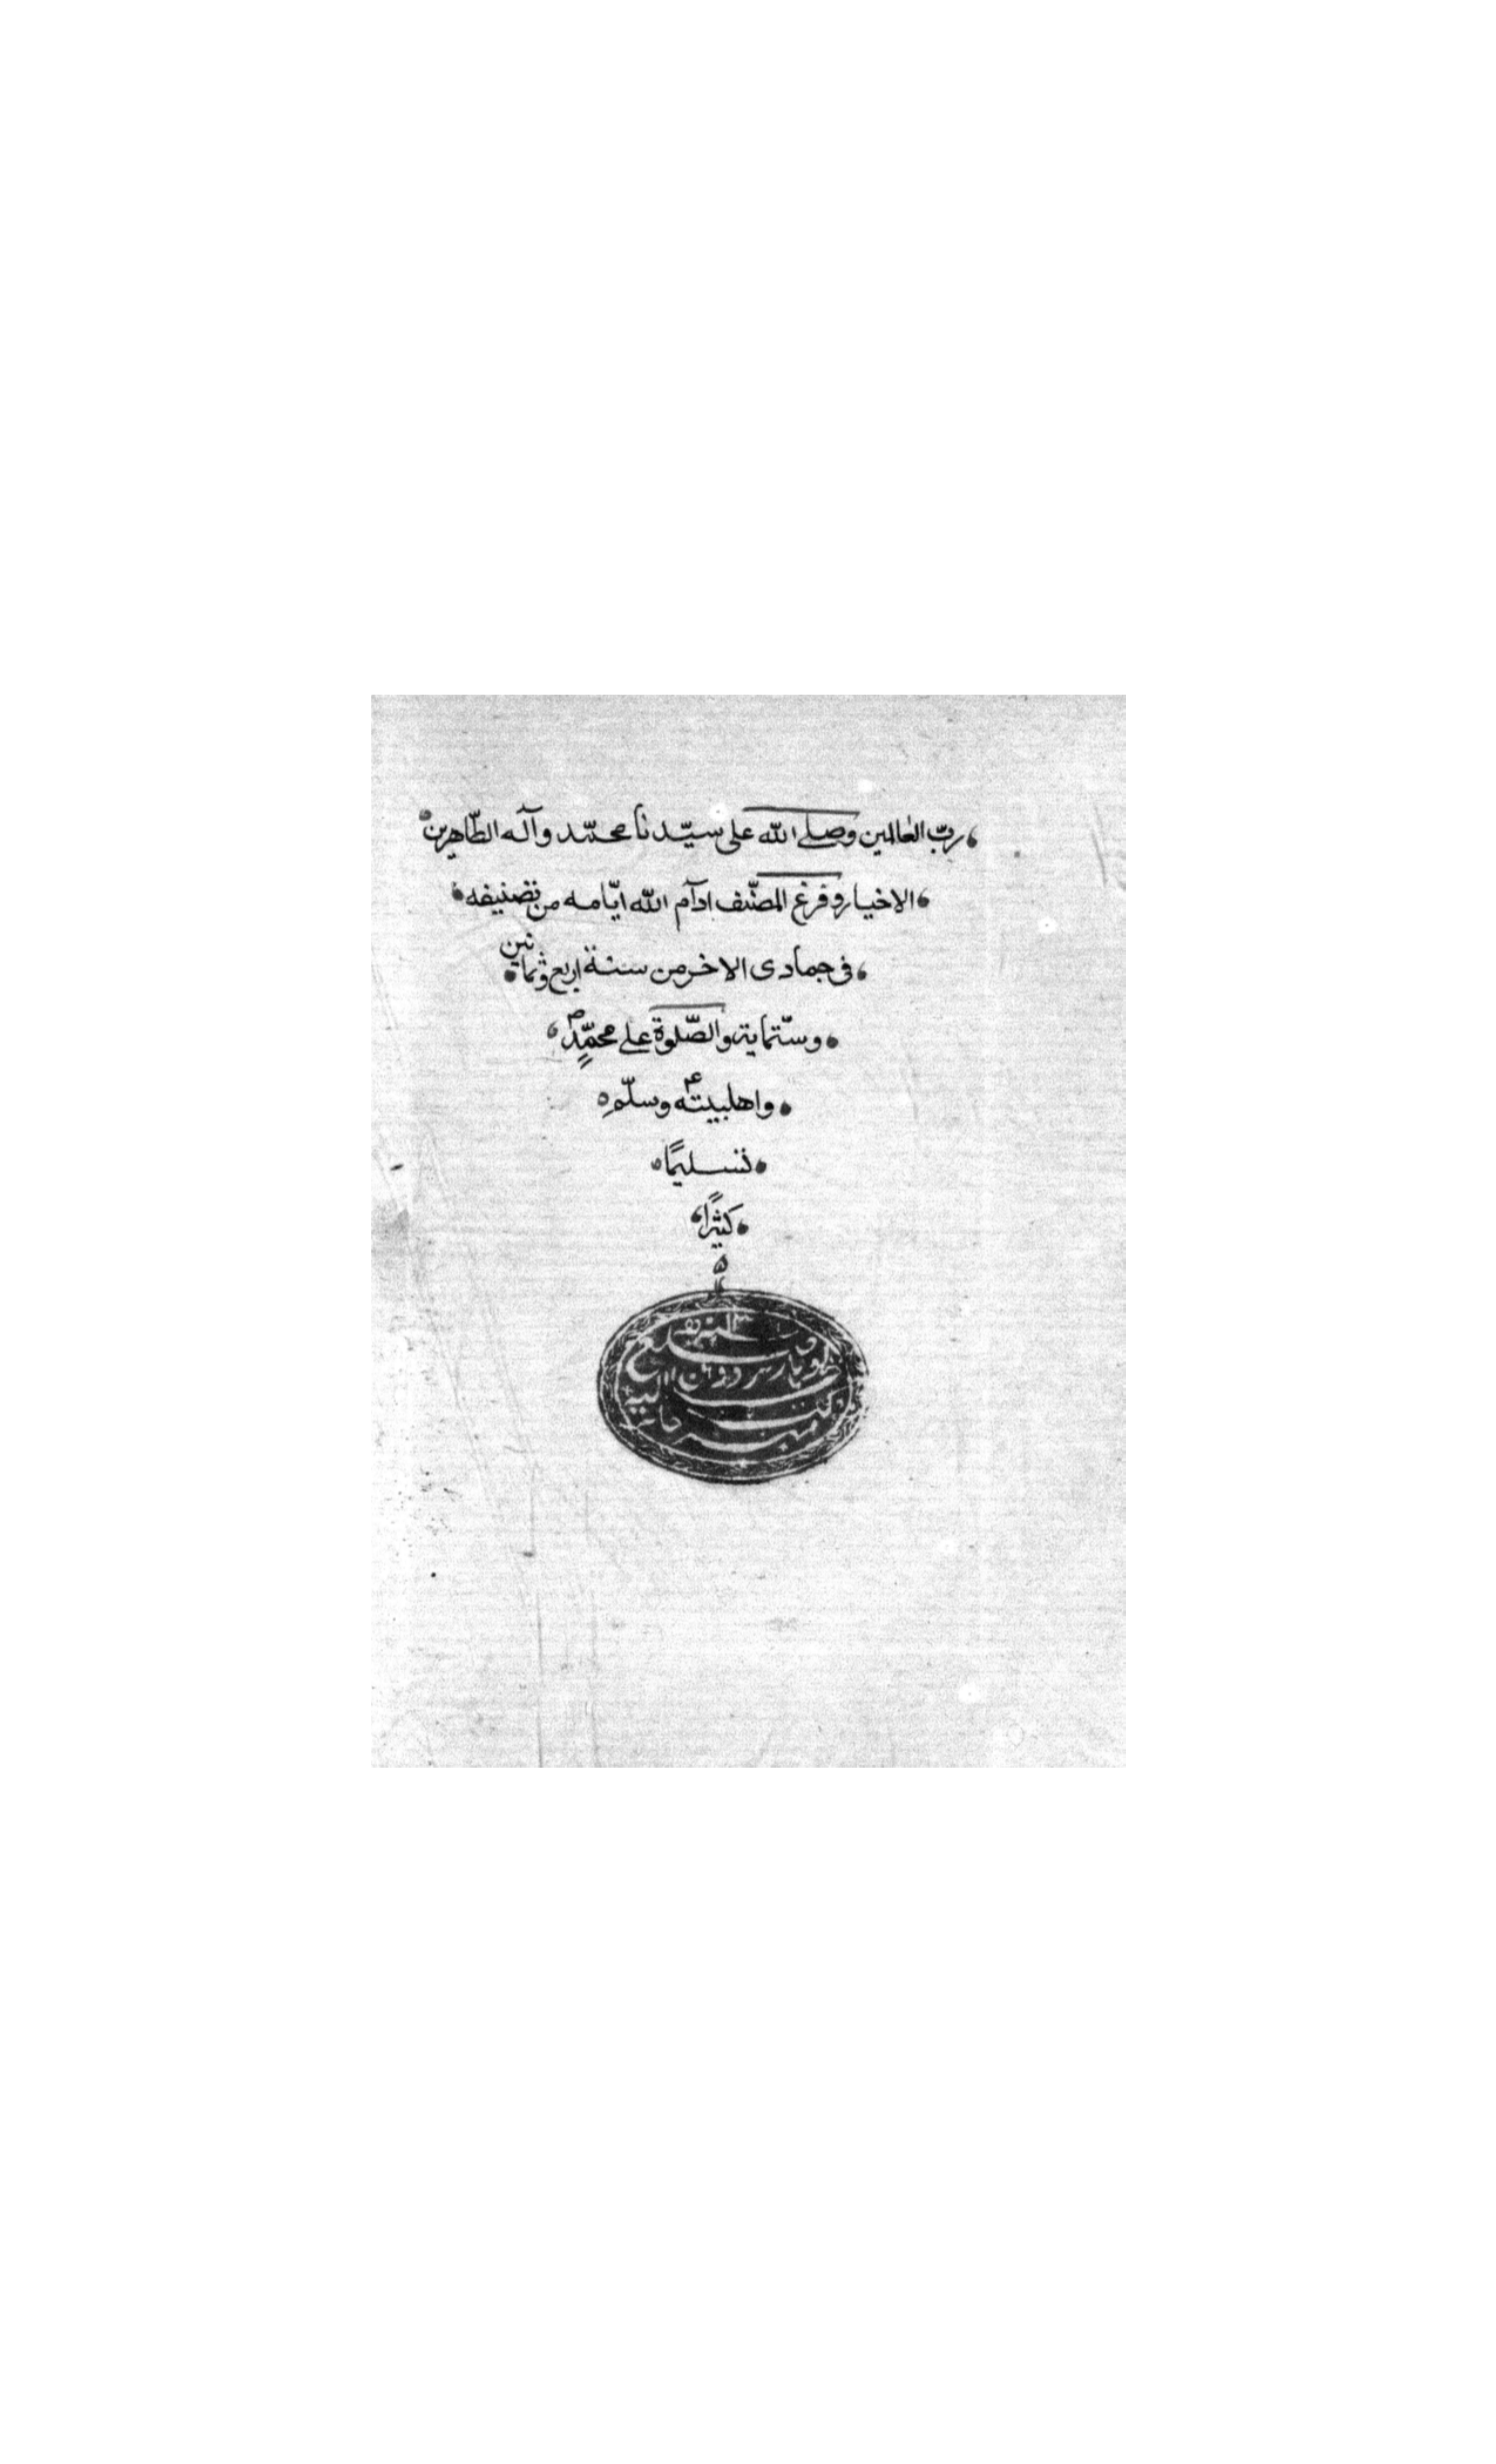 ربّ العالمين وصلى الله على سيّدنا محمّد وآله الطّاهرين
الاخيار وفرغ المصنّف ادآم الله ايّامه من تصنيفه
فى جمادى الاخر من سنة اربع وثمانين
وستماية والصّلوة على محمّدٍ ص
واهلبيته ع وسلّم
تسليمًا
كثيرًا